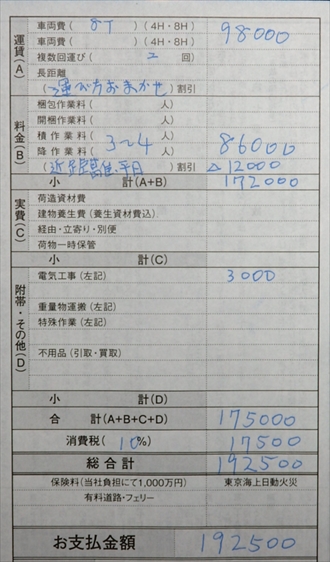 運賃(A)
車両費( 8T )(4H・8H) 98000
車両費( )(4H・8H)
複数回運び( 2 回)
長距離
(運び方おまかせ)割引
料金(B)
梱包作業料( 人)
開梱作業料( 人)
積作業料( 3~4 人) 86000
降作業料( 人)
(近距離、平日)割引 △12000
小計(A+B) 172000
実費(C)
荷造資材費
建物養生費(養生資材費込)
経由・立寄り・別便
荷物一時保管
小計(C)
附帯・その他(D)
電気工事(左記) 3000
重量物運搬(左記)
特殊作業(左記)
不用品(引取・買取)
小計(D)
合計(A+B+C+D) 175000
消費税( 10%) 17500
総合計 192500
保険料(当社負担にて1,000万円) 東京海上日動火災
有料道路・フェリー
お支払金額 192500